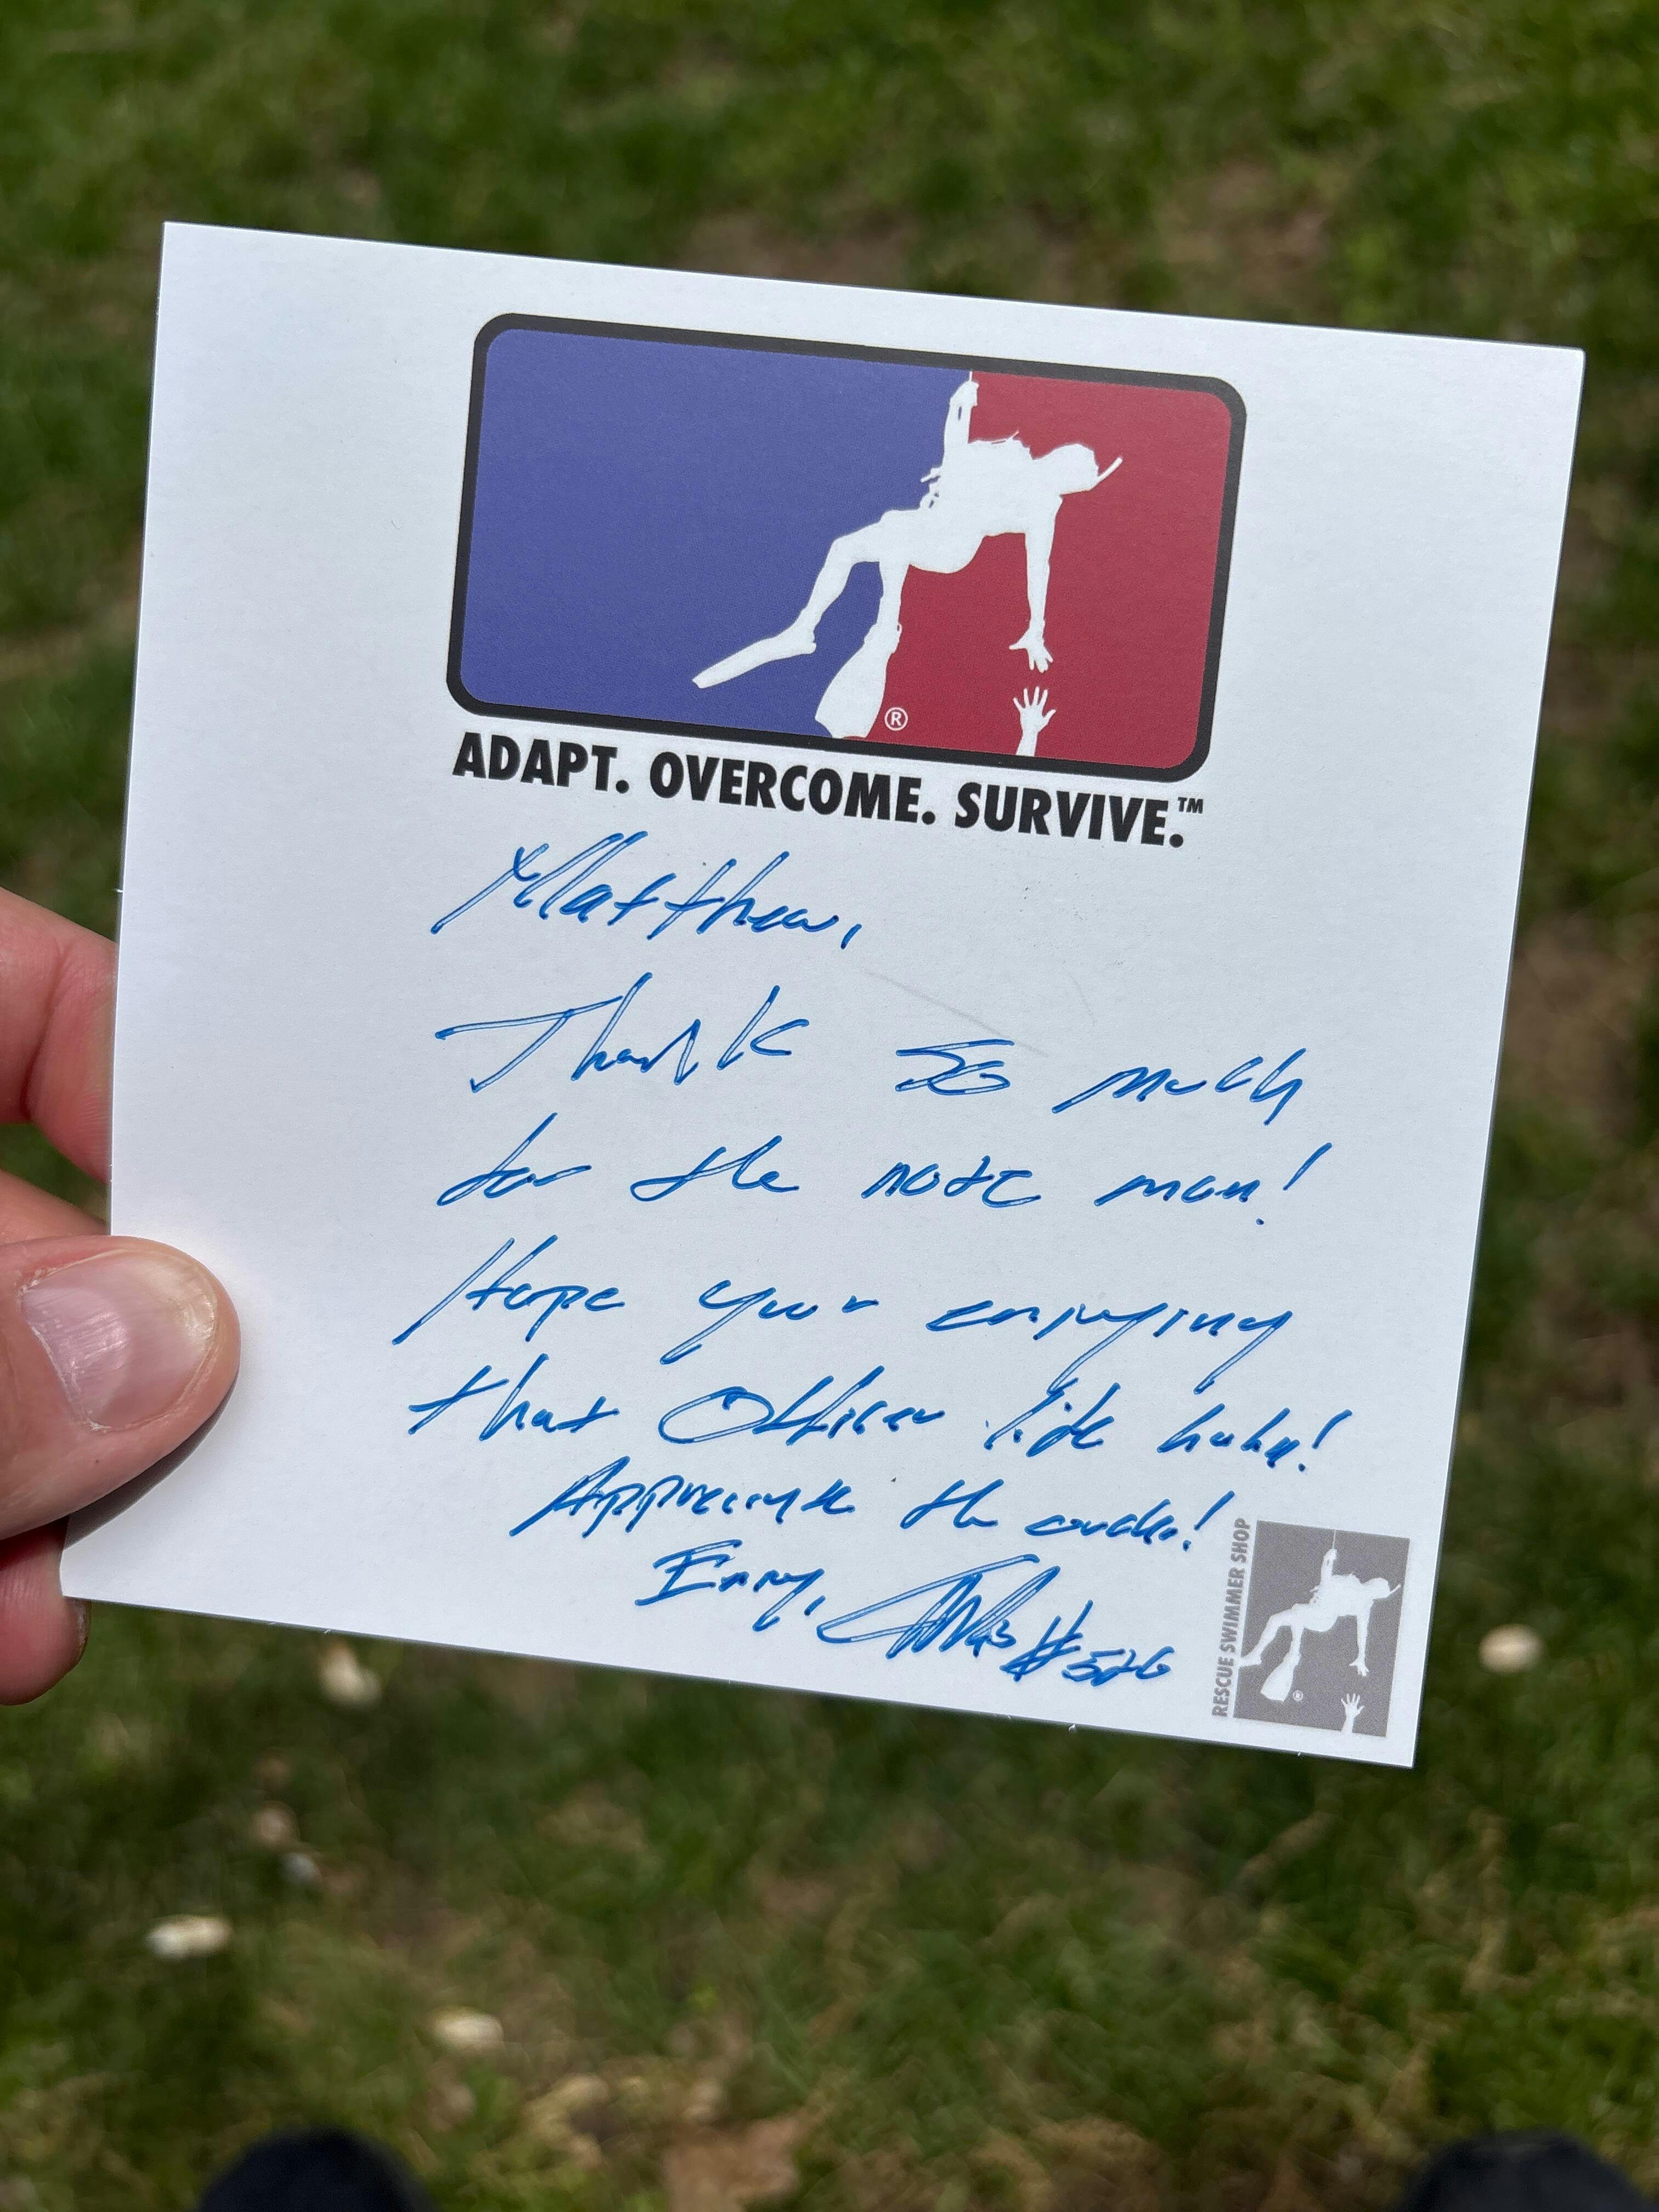 ®
ADAPT. OVERCOME. SURVIVE.™
Matthew,
Thank so much
for the note man!
Hope your enjoying
that Officer life haha!
Appreciate the order!
Enjoy,
#526
RESCUE SWIMMER SHOP
®